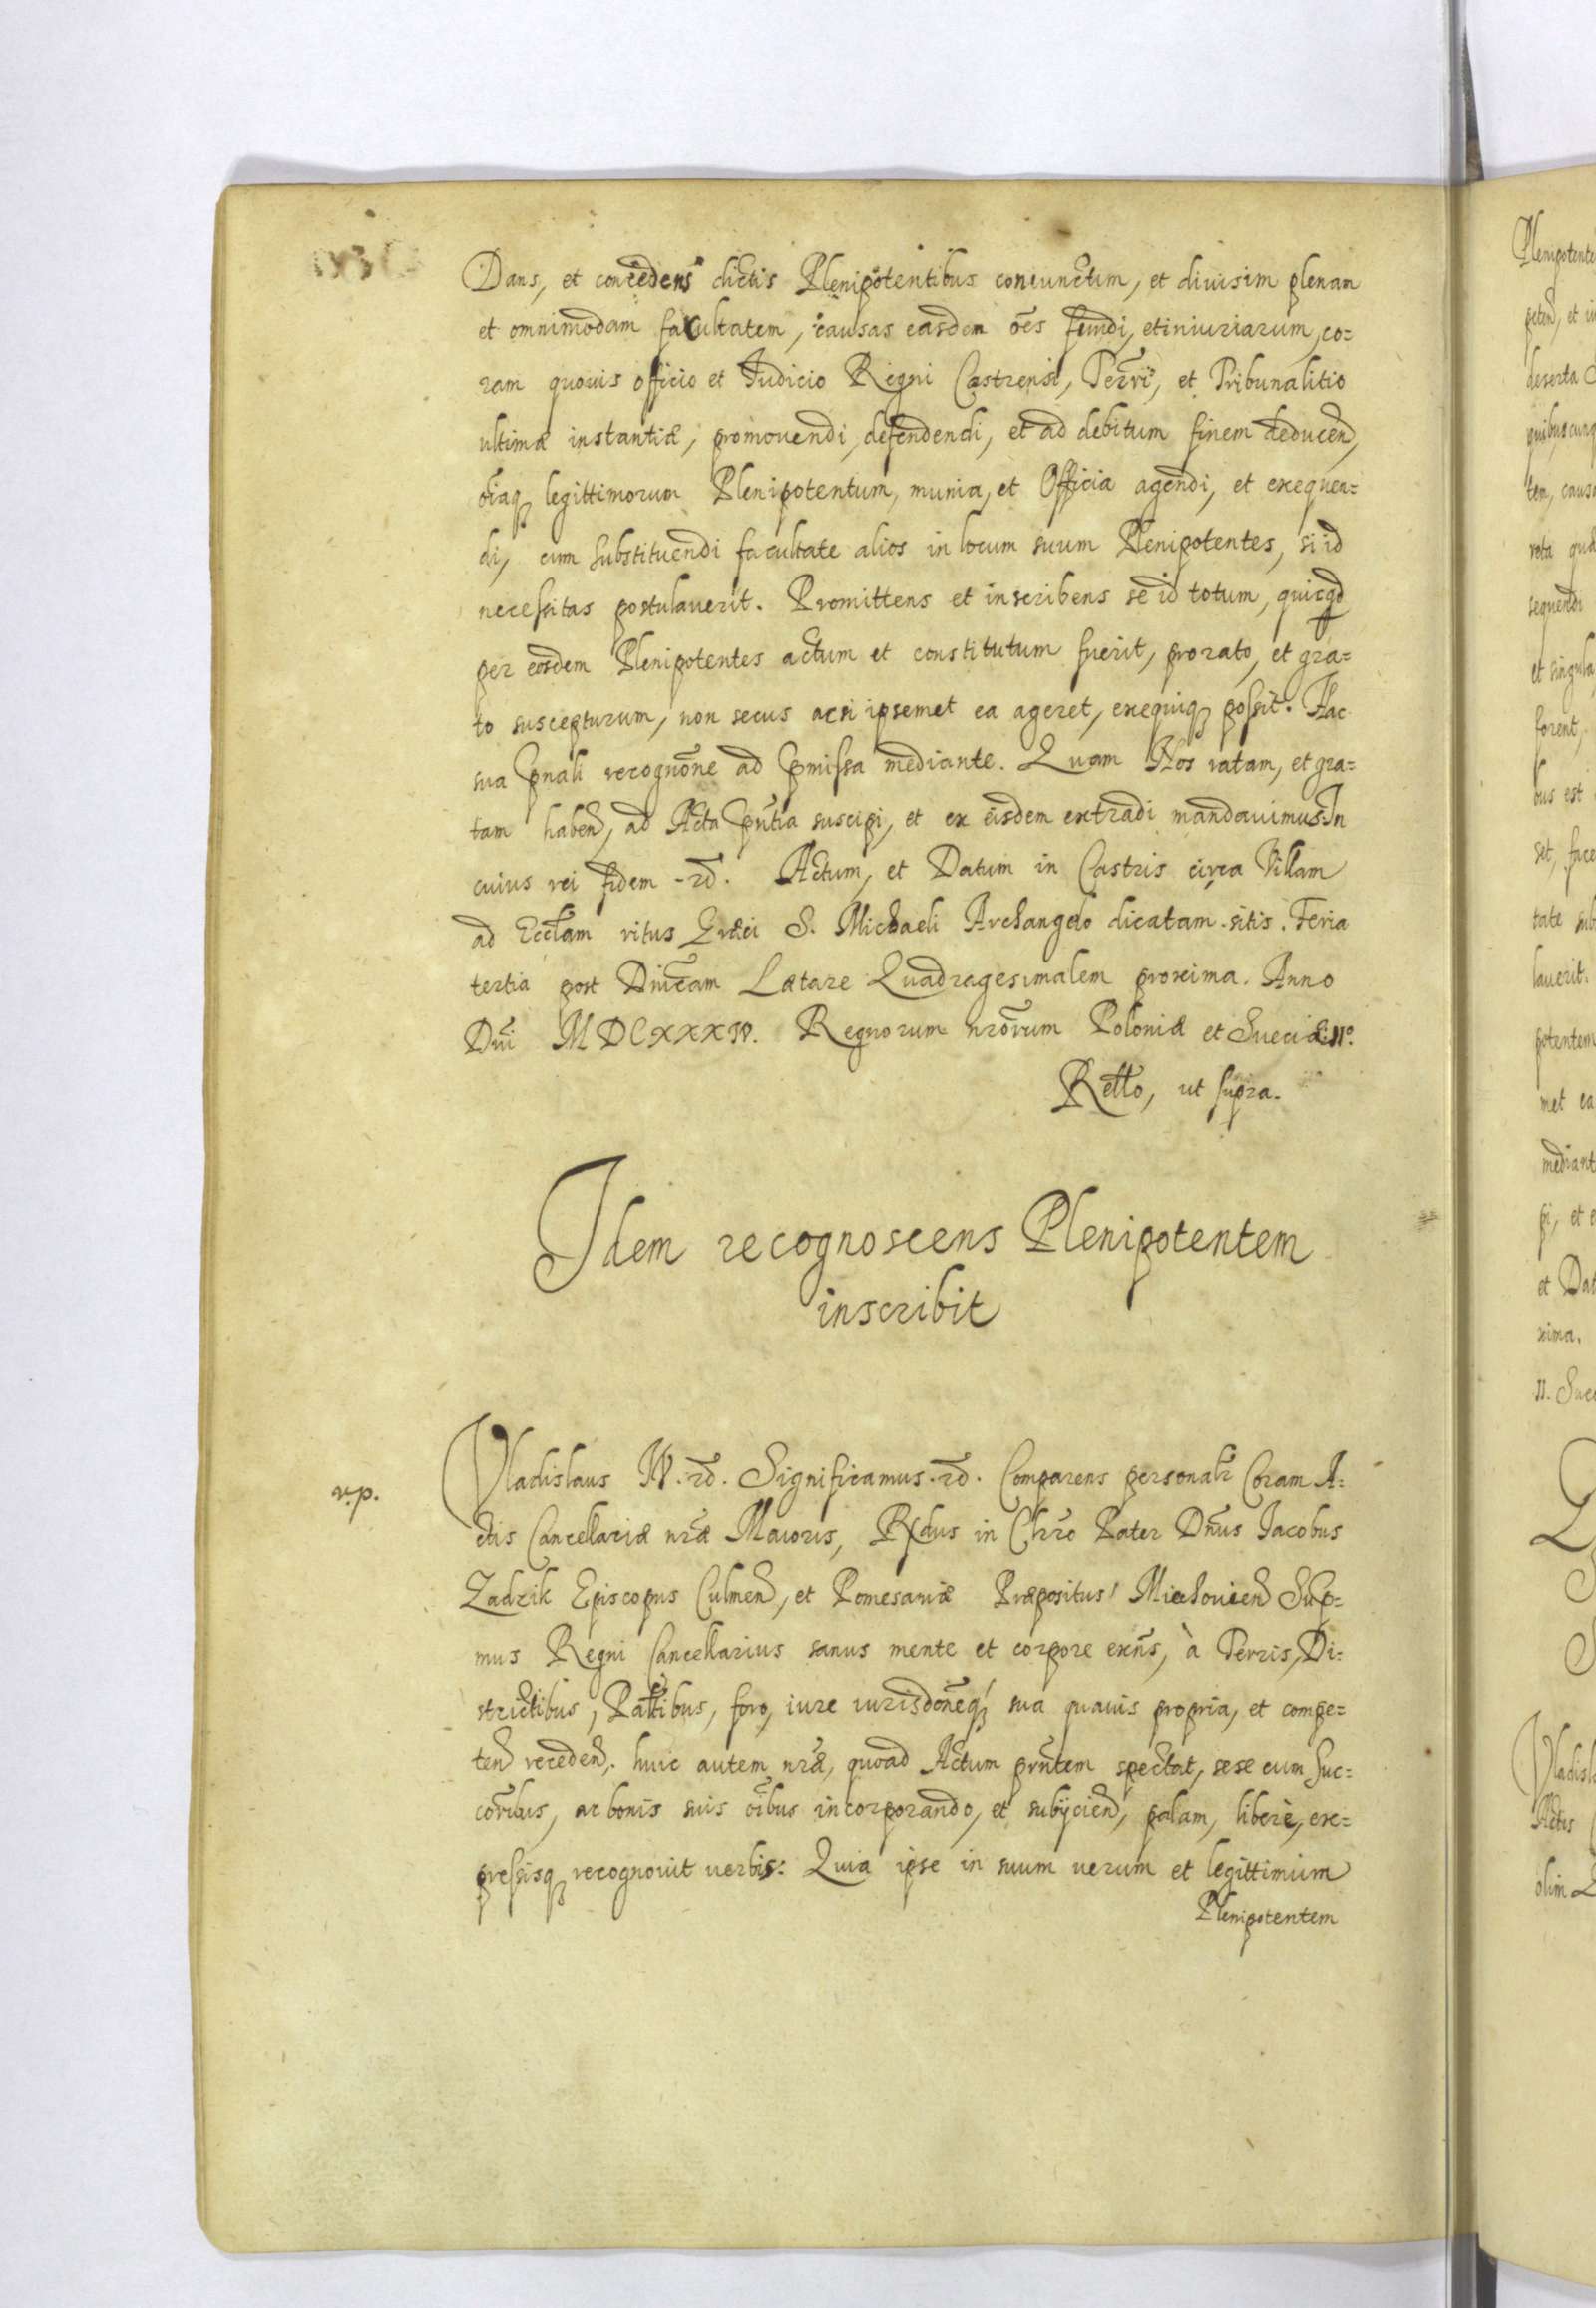 Dans, et concedens dictis Plenipotentibus coniunctim, et diuisim plenam
et omnimodam facultatem, causas easdem oẽs fundi, et iniuriarum, co=
ram quouis officio et Iudicio Regni Castrensi, Terrĩ, et Tribunalitio
ultimæ instantiæ, promouendi, defendendi, et ad debitum finem deducen,
oĩaq legittimorum Plenipotentum, munia, et Officia agendi, et exequen=
di, cum substituendi facultate alios in locum suum Plenipotentes, si id
necessitas postulauerit. Promittens et inscribens se id totum, quicqd
per eosdem Plenipotentes actum et constitutum fuerit, pro rato, et gra=
to suscepturum, non secus acsi ipsemet ea ageret, exequiq possit. Hac
sua pnali recognõne ad pmissa mediante. Quam Nos ratam, et gra=
tam haben, ad Acta pñtia suscipi, et ex eisdem extradi mandauimus. In
cuius rei fidem -rd. Actum, et Datum in Castris circa Villam
ad Eccłam ritus Græci S. Michaeli Archangelo dicatam sitis. Feria
tertia post Dnĩcam Lætare Quadragesimalem proxima. Anno
Dñi MDCXXXIV. Regnorum nrõrum Poloniæ et Sueciæ II°.
Retto, ut supra.
Idem recognoscens Plenipotentem
inscribit
r.p.
Vladislaus IV. rd. Significamus. rd. Comparens personalr Coram A=
ctis Cancellariæ nræ Maioris, Rndus in Chro Pater Dñus Iacobus
Zadzik Episcopus Culmen, et Pomesaniæ Præpositus Miechouien Sup=
mus Regni Cancellarius sanus mente et corpore exñs, à Terris, Di=
strictibus, Pałtibus, foro, iure iurisdõneq sua quauis propria, et compe=
ten receden, huic autem nræ, quoad Actum prñtem spectat, sese cum suc=
cõribus, ac bonis suis oĩbus incorporando, et subijcien, palam, liberè, ex=
pressisq recognouit uerbis: Quia ipse in suum uerum et legittimum
Plenipotentem